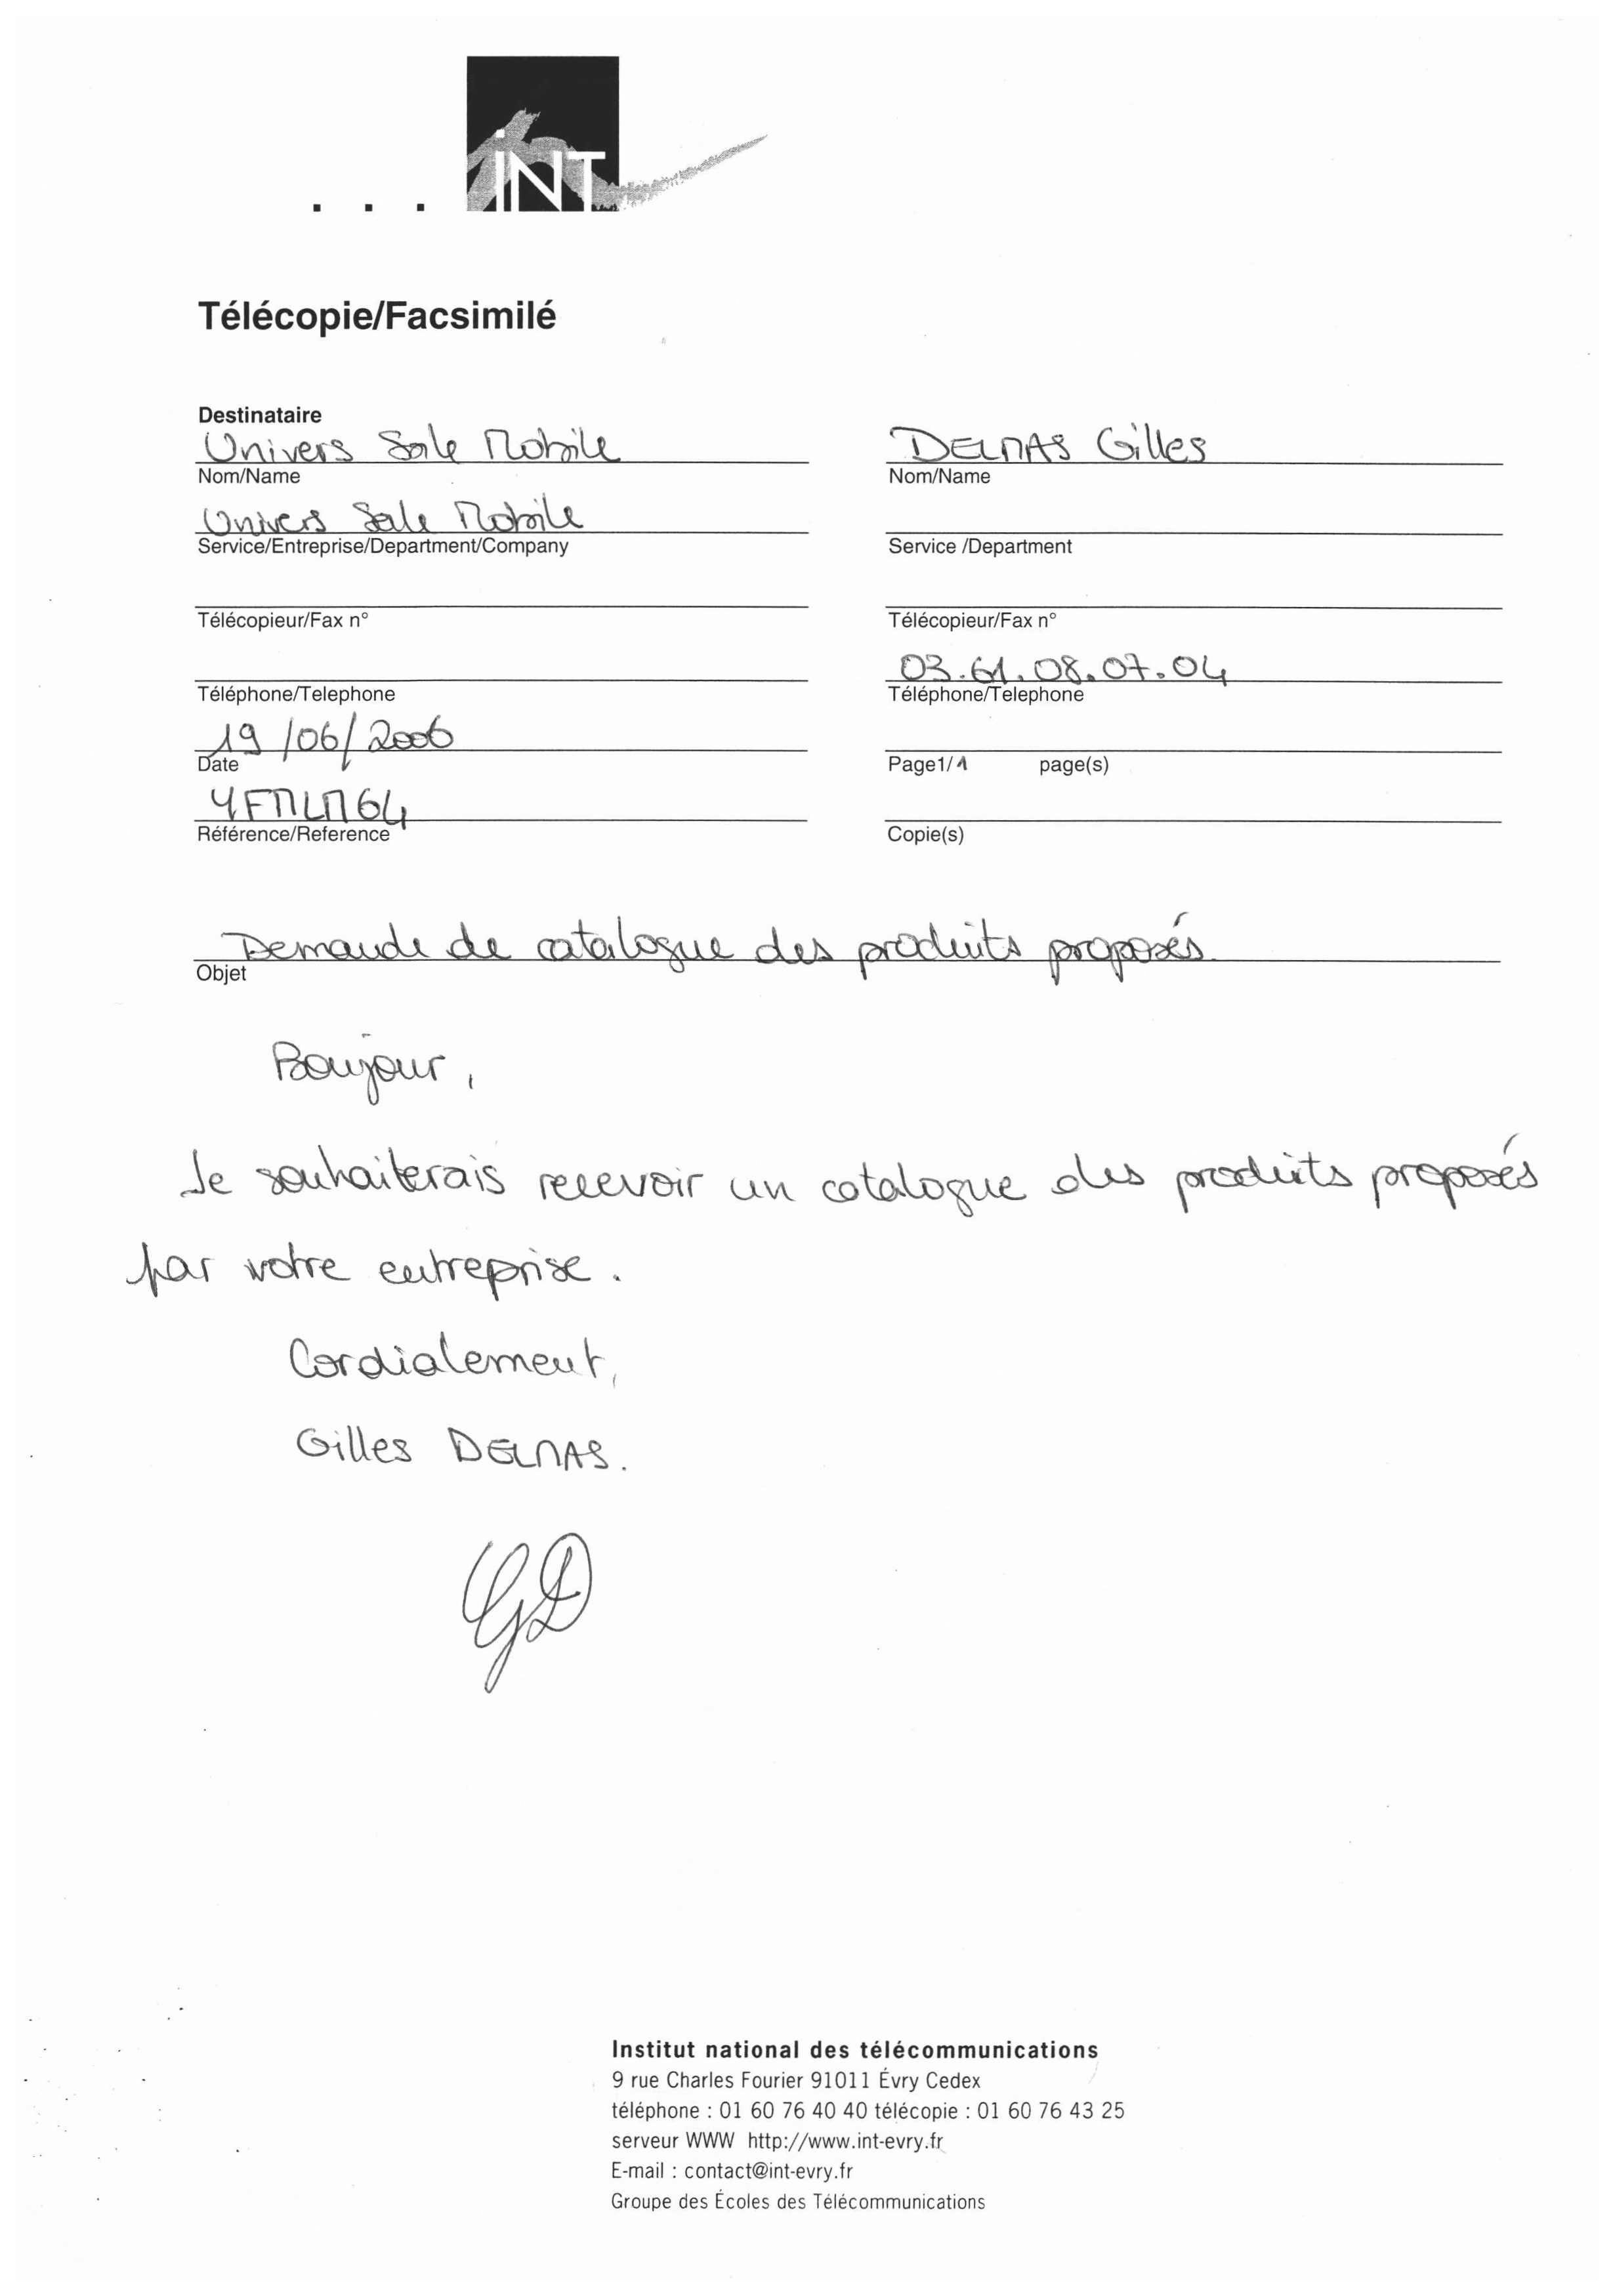 ... iNT
Télécopie/Facsimilé
Destinataire
Univers Sale Mobile
Nom/Name
Univers Sale Mobile
Service/Entreprise/Department/Company
Télécopieur/Fax n°
Téléphone/Telephone
19/06/2006
Date
YFMLM64
Référence/Reference
DELMAS Gilles
Nom/Name
Service /Department
Télécopieur/Fax n°
03.61.08.07.04
Téléphone/Telephone
Page1/1 page(s)
Copie(s)
Demande de catalogue des produits proposés
Objet
Bonjour,
Je souhaiterais recevoir un catalogue des produits proposés
par votre entreprise.
Cordialement,
Gilles DELMAS.
GD
Institut national des télécommunications
9 rue Charles Fourier 91011 Évry Cedex
téléphone : 01 60 76 40 40 télécopie : 01 60 76 43 25
serveur WWW http://www.int-evry.fr
E-mail : contact@int-evry.fr
Groupe des Écoles des Télécommunications